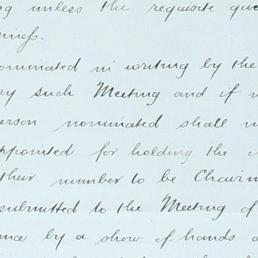 ng unless the requisite quo
iness.
ominated in writing by the
ry such Meeting and if n
erson nominated shall n
ppointed for holding the
their number to be Chairm
submitted to the Meeting of
nce by a show of hands a